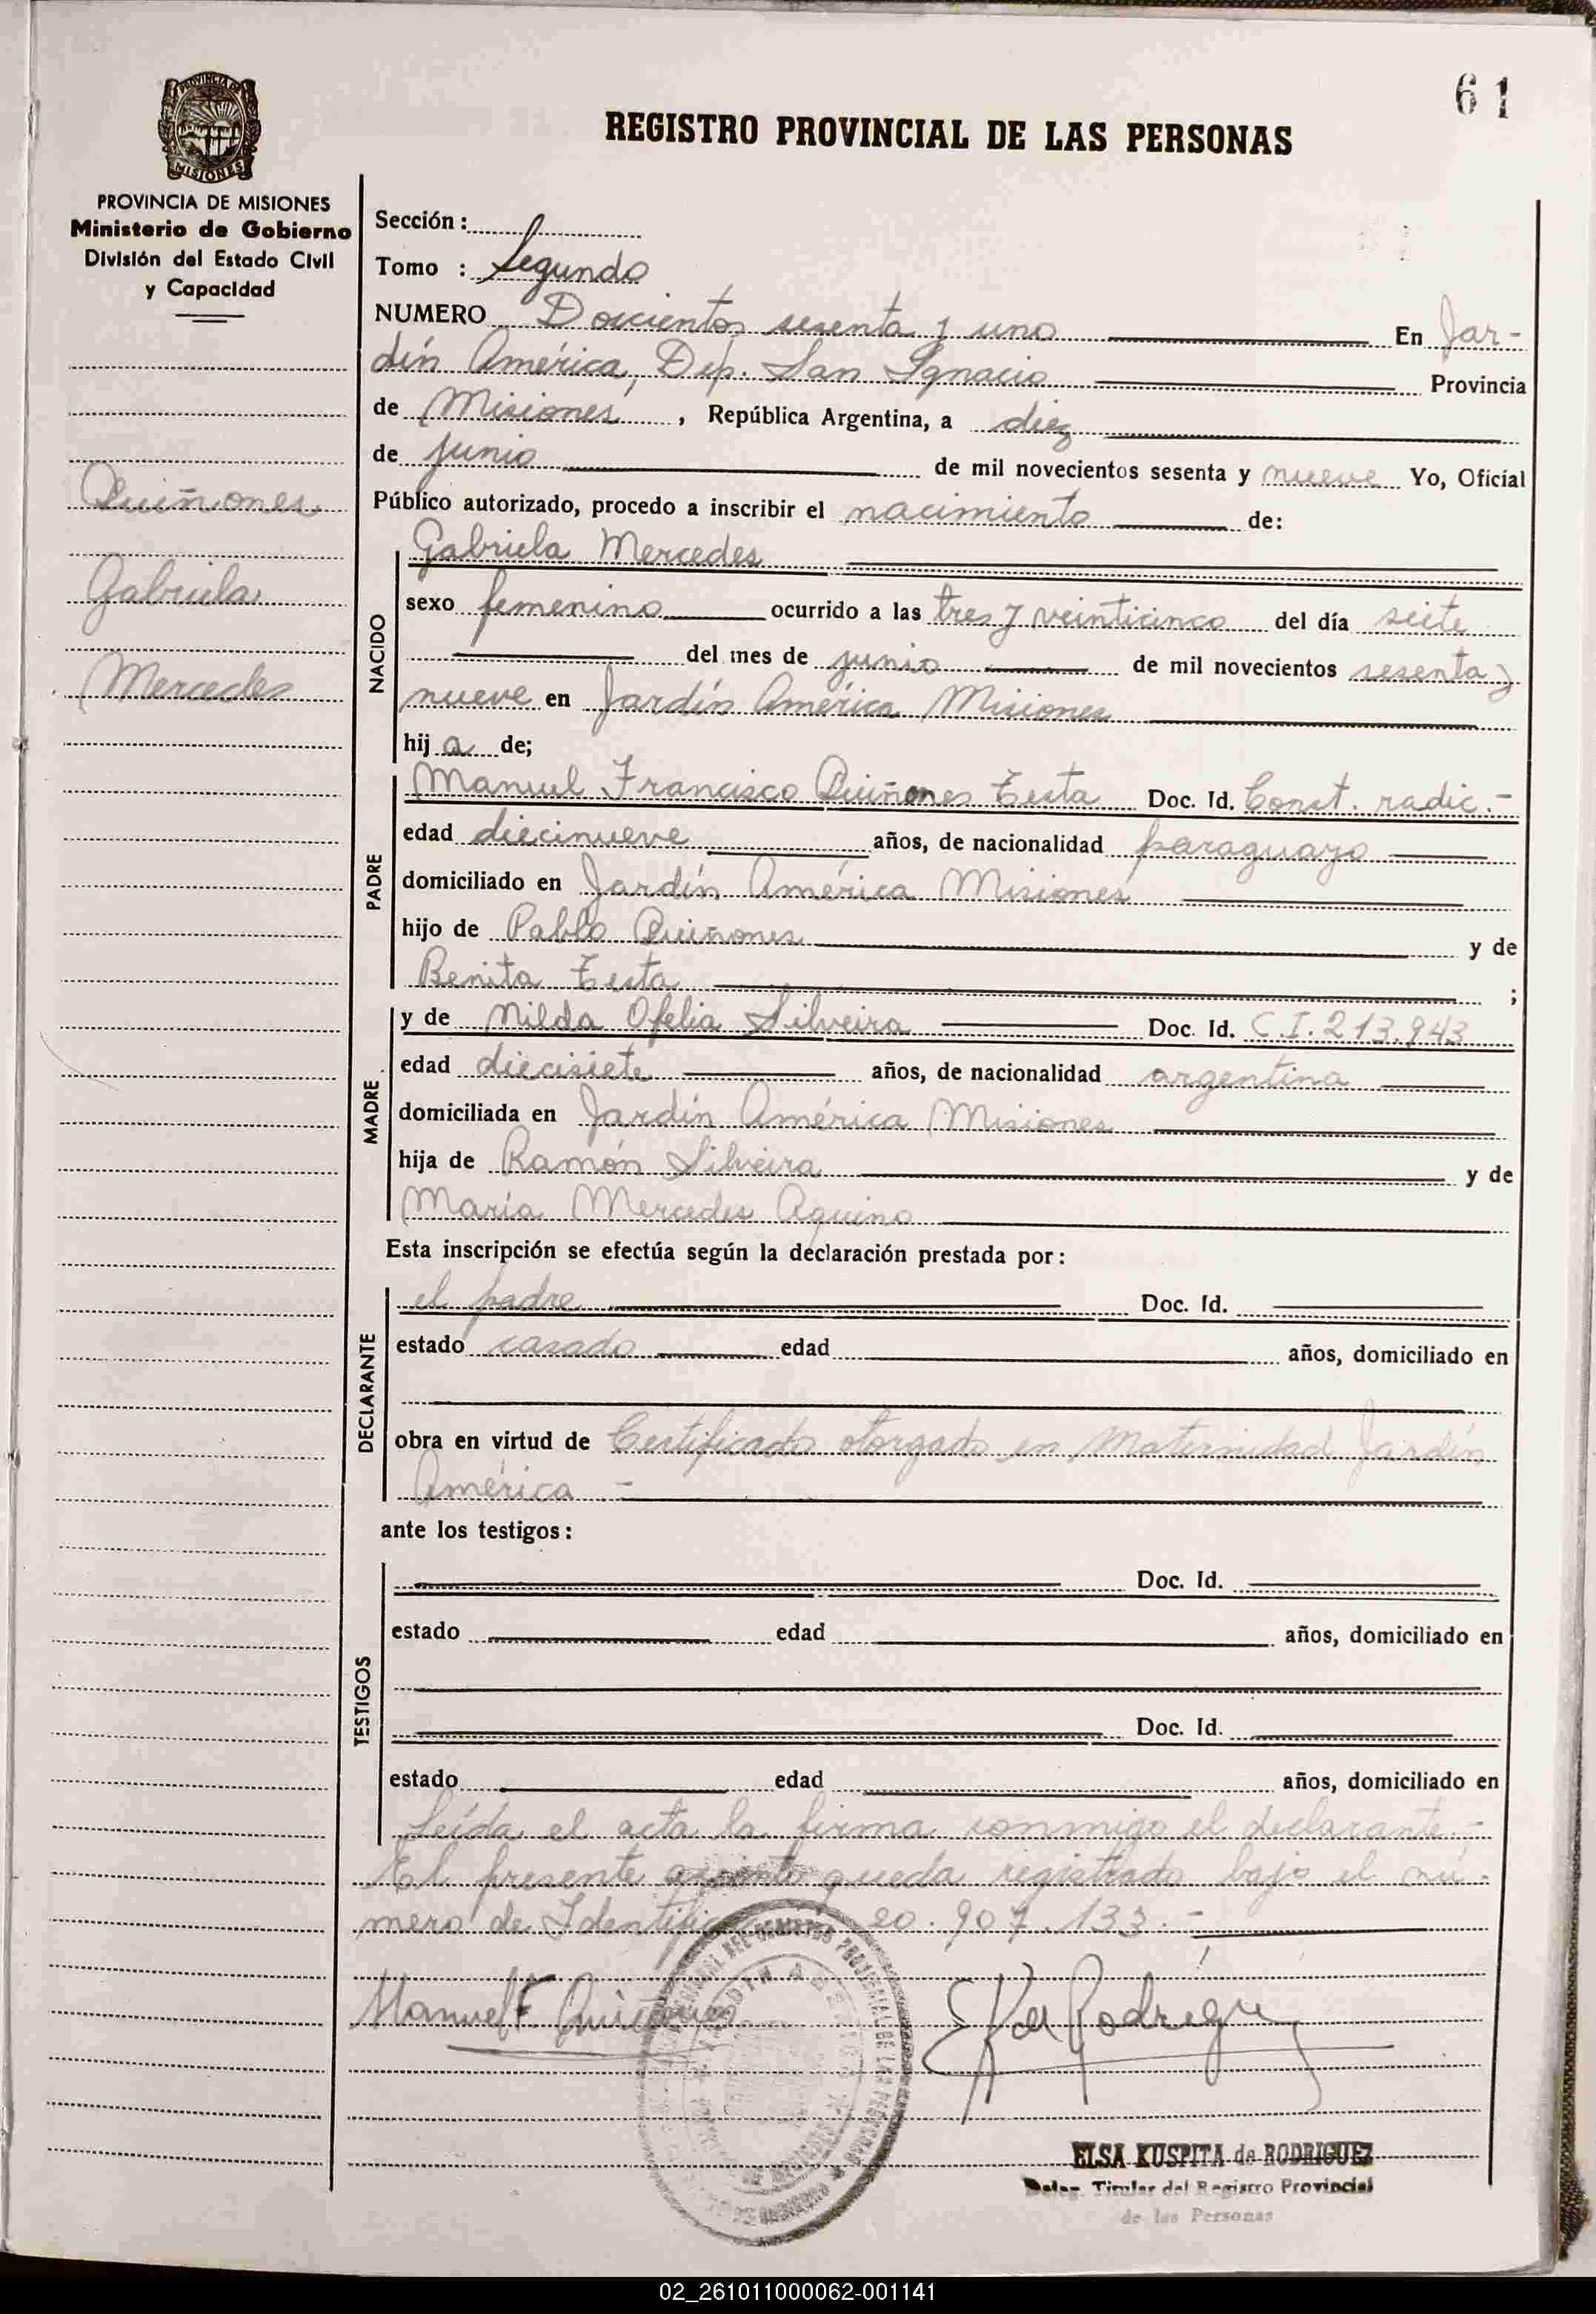 61
REGISTRO PROVINCIAL DE LAS PERSONAS
PROVINCIA DE
MISIONES
PROVINCIA DE MISIONES
Ministerio de Gobierno
División del Estado Civil
y Capacidad
Quiñones
Gabriela
Mercedes
Sección:
Tomo : Segundo
NUMERO Doscientos sesenta y uno En Jar-
dín América, Dep. San Ignacio Provincia
de Misiones, República Argentina, a diez
de junio de mil novecientos sesenta y nueve Yo, Oficial
Público autorizado, procedo a inscribir el nacimiento de:
NACIDO
Gabriela Mercedes
sexo femenino ocurrido a las tres y veinticinco del día siete
del mes de junio de mil novecientos sesenta y
nueve en Jardín América Misiones
hija de;
PADRE
Manuel Francisco Quiñones Testa Doc. Id. Const. radic.-
edad diecinueve años, de nacionalidad paraguayo
domiciliado en Jardín América Misiones
hijo de Pablo Quiñones y de
Benita Testa ;
MADRE
y de Nilda Ofelia Silveira Doc. Id. C.I. 213.943
edad diecisiete años, de nacionalidad argentina
domiciliada en Jardín América Misiones
hija de Ramón Silveira y de
María Mercedes Aquino
Esta inscripción se efectúa según la declaración prestada por:
DECLARANTE
el padre Doc. Id.
estado casado edad años, domiciliado en
obra en virtud de Certificado otorgado en Maternidad Jardín
América.-
ante los testigos:
TESTIGOS
Doc. Id.
estado edad años, domiciliado en
Doc. Id.
estado edad años, domiciliado en
Leída el acta la firma conmigo el declarante.-
El presente asiento queda registrado bajo el nú-
mero de 20.907.133.-
Manuel F. Quiñones
ELSA KUSPITA de RODRIGUEZ
Deleg. Titular del Registro Provincial
de las Personas
02_261011000062-001141